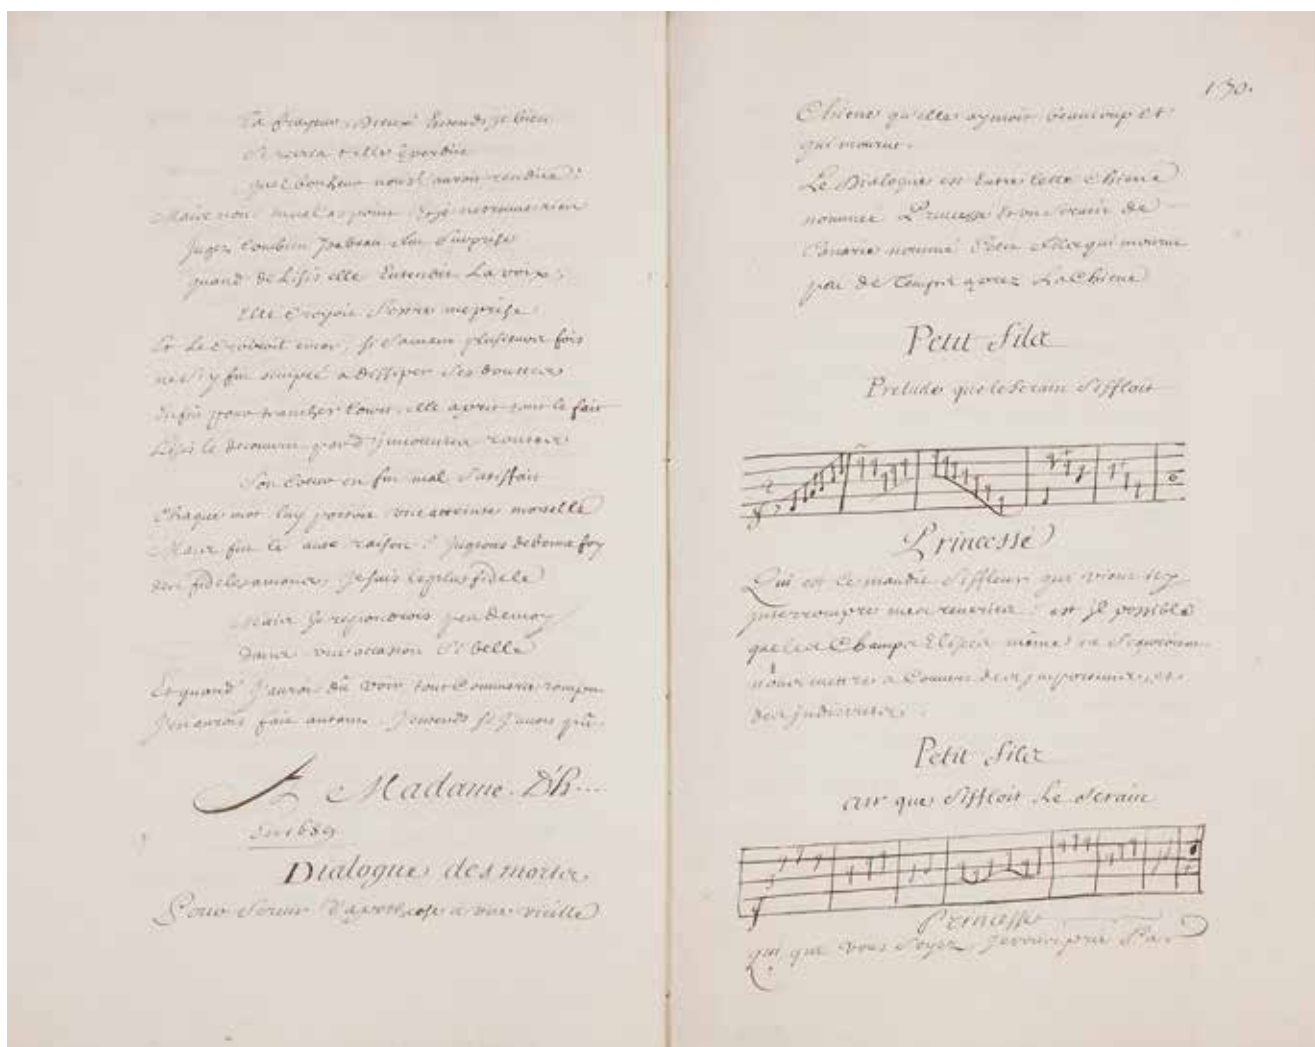 La frayeur, Dieux! Entends je bien
quel bonheur nous l'auroit rendüe?
Jugez Combien Isabeau fut Surprise
quand de Lisis elle Entendit La voix;
Elle Croyoit S'estre meprise
Et Le Croiroit encor, si l'amant plusieurs fois
a dissiper Ses doutes
Enfin pour trancher Court, elle aprit tout le fait
Lisis le decouvrit par
Son Coeur en fut mal Satisfait
Chaque mot luy portoit une atteinte mortelle
Mais fut ce avec raison? Jugeons de bonne foy
des fideles amants, Je suis le plus fidele
Mais Je repondrois peu de moy
dans une occasion Si belle
Et quand J'aurois dû voir tout Commerce rompu
J'en aurois fait autant, J'entends si J'avois pû.
A Madame D'h...
En 1689
Dialogue des morts
Pour Servir d'apotheose a une vieille
130.
Chiene qu'elle aymoit beaucoup et
qui mourut.
Le Dialogue est Entre cette Chiene
nommée Princesse et un Serain de
Canarie nommé Petit Fils qui mourut
peu de Temps aprez La Chiene
Petit Fils
Prelude que le Serain Siffloit
Princesse
Qui est ce maudit Siffleur qui vient icy
interrompre mes reveries? est il possible
que les Champs Elisées même ne Scauroient
nous mettre a Couvert des importuns, et
des indiscrets.
Petit Fils
air que Siffloit Le Serain
Princesse
qui que vous Soyez, Je vous prie